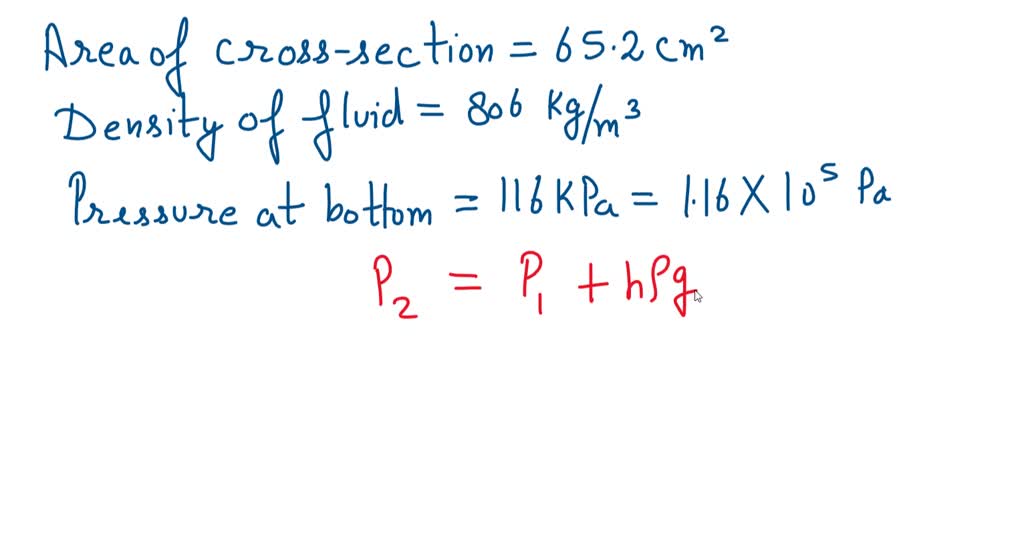 Area of cross-section = 65.2 cm²
Density of fluid = 806 Kg/m³
Pressure at bottom = 116 KPa = 1.16 X 10⁵ Pa
P₂ = P₁ + hρg